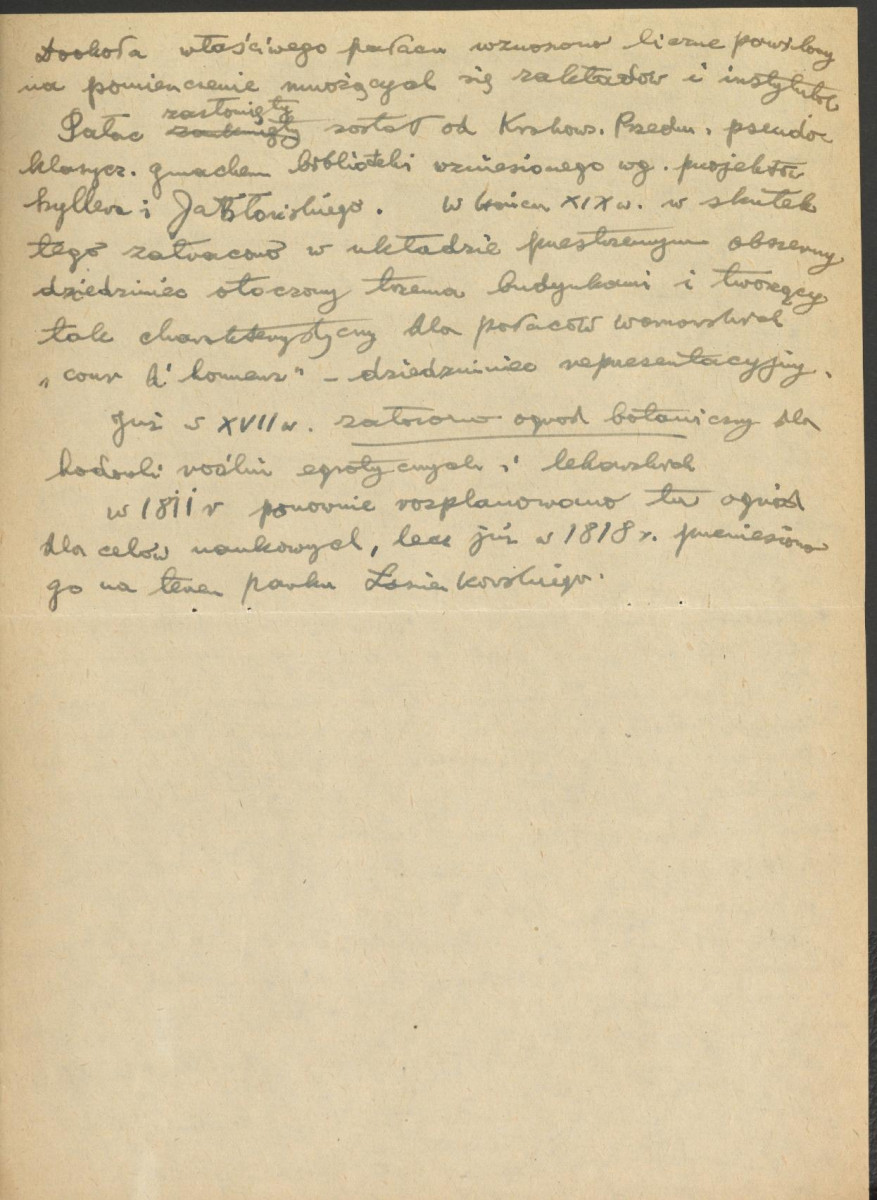 Dookoła właściwego pałacu wznoszono liczne pawilony
na pomieszczenie mnożących się zakładów i instytutów
zasłonięty
Pałac zamknięty został od Krakows. Przedm. pseudo
klasycz. gmachem biblioteki wzniesionego wg. projektów
Szyllera i Jabłońskiego. W końcu XIX w. w skutek
tego zatracono w układzie przestrzennym obszerny
dziedziniec otoczony trzema budynkami i tworzący
tak charakterystyczny dla pałaców warszawskich
„cour d'honneur" – dziedziniec reprezentacyjny.
Już w XVII w. założono ogród botaniczny dla
hodowli roślin egzotycznych i lekarskich
w 1811 r ponownie rozplanowano tu ogród
dla celów naukowych, lecz już w 1818 r. przeniesiono
go na teren parku Łazienkowskiego.